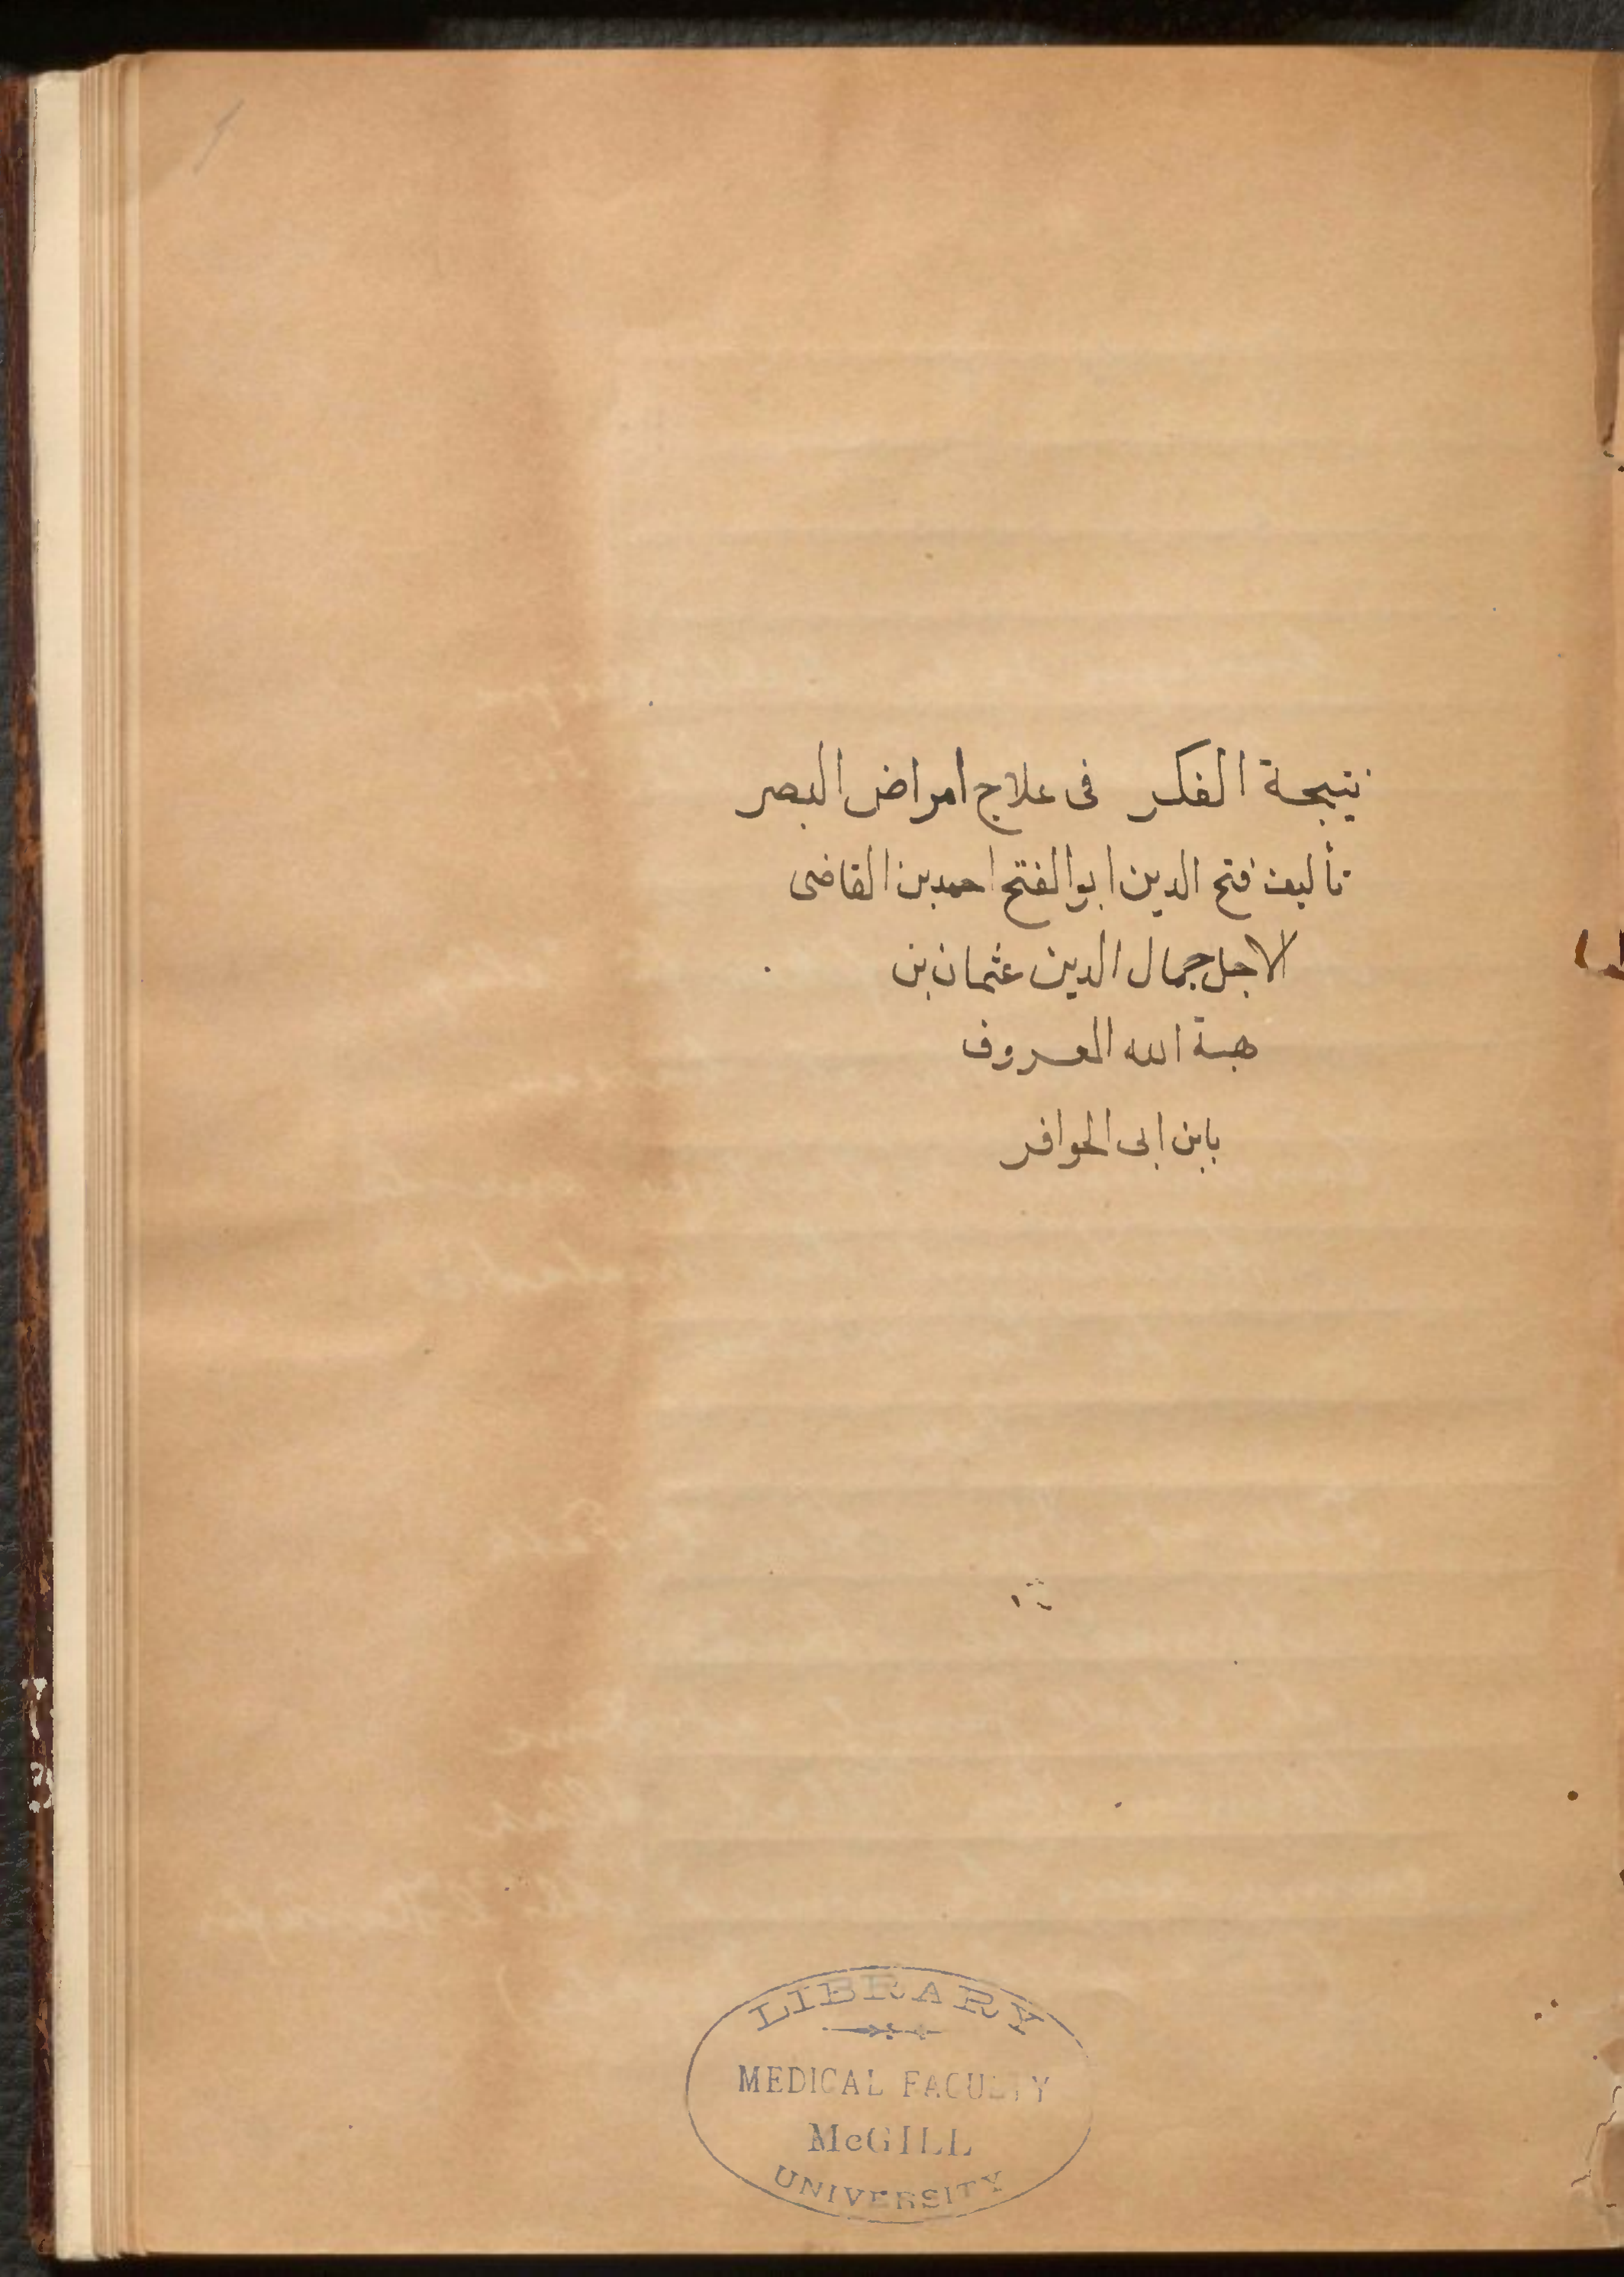 نتيجة الفكر فى علاج امراض البصر
تأليف فتح الدين ابو الفتح احمد بن القاضى
الاجل جمال الدين عثمان بن
هبة الله المعروف
بابن ابى الحوافر
LIBRARY
MEDICAL FACULTY
McGILL
UNIVERSITY